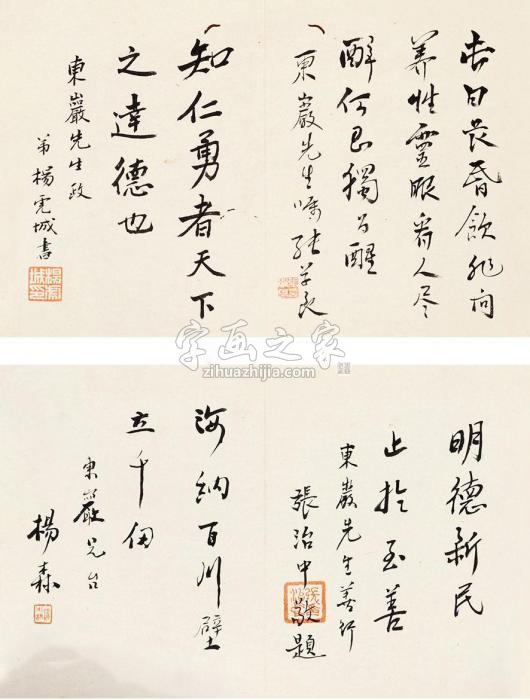 此日長昏飲非向
養性靈眼看人尽
醉何忍獨為醒
東巖先生囑 張學良
知仁勇者天下
之達德也
東巖先生政
弟楊虎城書
楊虎城印
字画之家
zihuazhijia.com
明德新民
止於至善
東巖先生善行
張治中敬題
海納百川壁
立千仞
東巖兄台
楊森